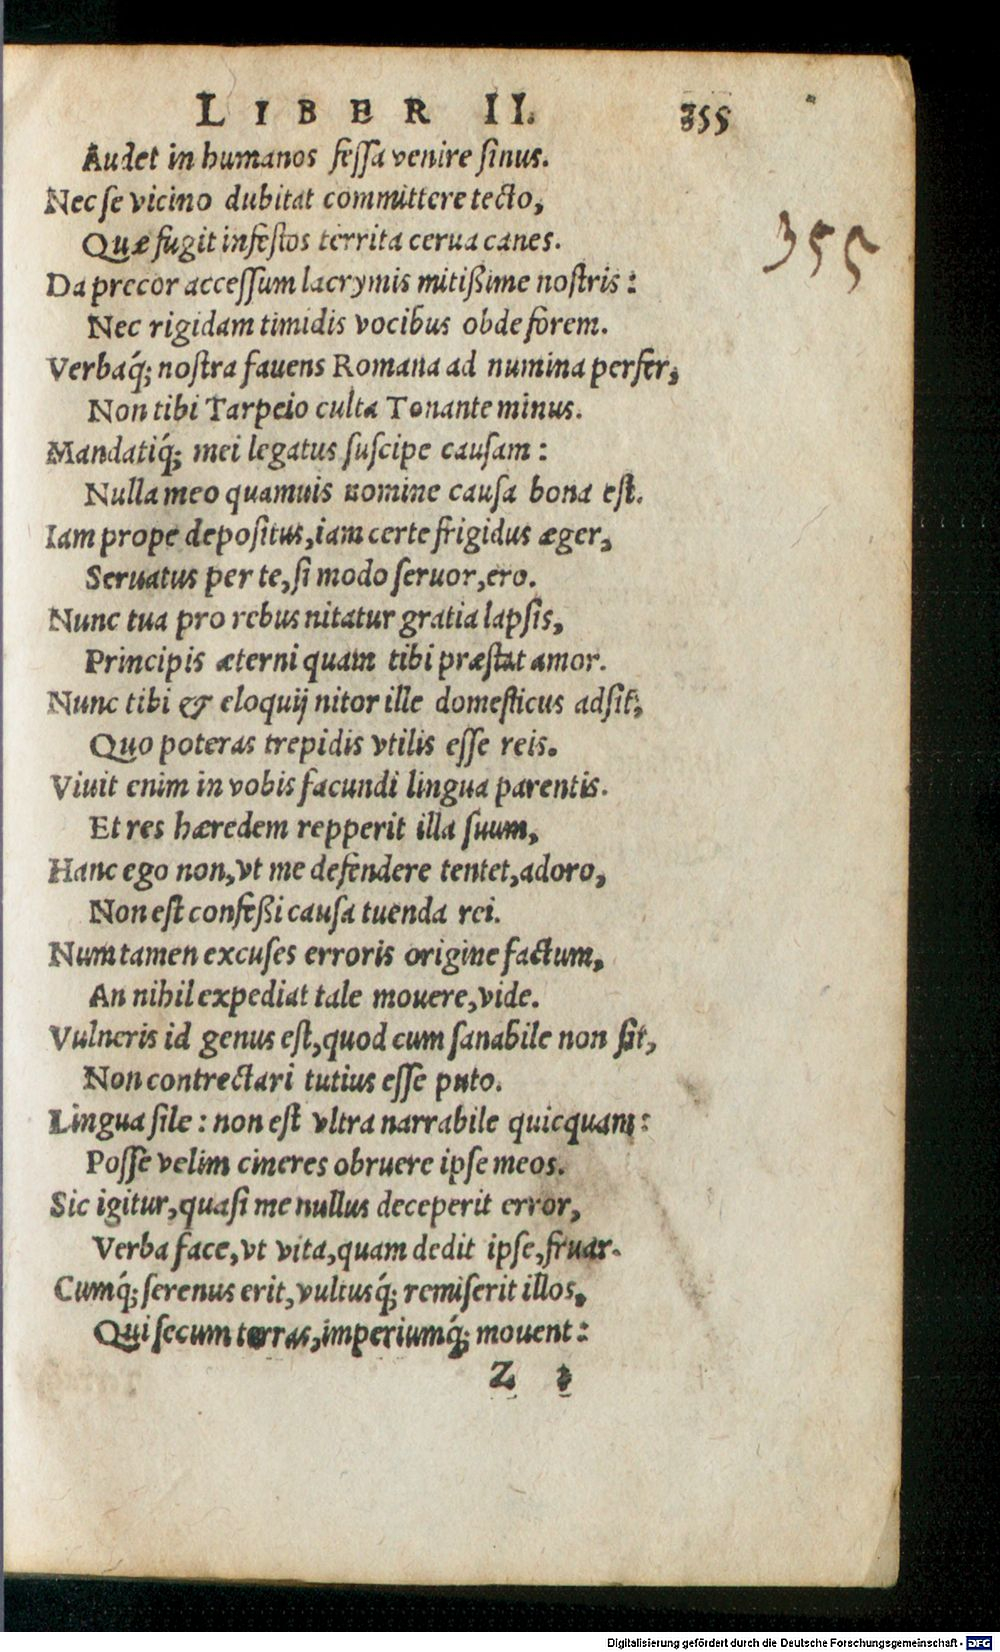 LIBER II. 355
Audet in humanos fessa venire sinus.
Nec se vicino dubitat committere tecto,
Quæ fugit infestos territa cerua canes.
355
Da precor accessum lacrymis mitißime nostris:
Nec rigidam timidis vocibus obde forem.
Verbaq́; nostra favens Romana ad numina perfer,
Non tibi Tarpeio culta Tonante minus.
Mandatiq́; mei legatus suscipe causam:
Nulla meo quamuis nomine causa bona est.
Iam prope depositus, iam certe frigidus æger,
Seruatus per te, si modo seruor, ero.
Nunc tua pro rebus nitatur gratia lapsis,
Principis æterni quam tibi præstat amor.
Nunc tibi & eloquij nitor ille domesticus adsit,
Quo poteras trepidis vtilis esse reis.
Viuit enim in vobis facundi lingua parentis.
Et res hæredem repperit illa suum,
Hanc ego non, vt me defendere tentet, adoro,
Non est confeßi causa tuenda rei.
Num tamen excuses erroris origine factum,
An nihil expediat tale mouere, vide.
Vulneris id genus est, quod cum sanabile non sit,
Non contrectari tutius esse puto.
Lingua sile: non est vltra narrabile quicquam:
Posse velim cineres obruere ipse meos.
Sic igitur, quasi me nullus deceperit error,
Verba face, vt vita, quam dedit ipse, fruar.
Cumq́; serenus erit, vultusq́; remiserit illos,
Qui secum terras, imperiumq́; mouent:
Z
Digitalisierung gefördert durch die Deutsche Forschungsgemeinschaft - DFG